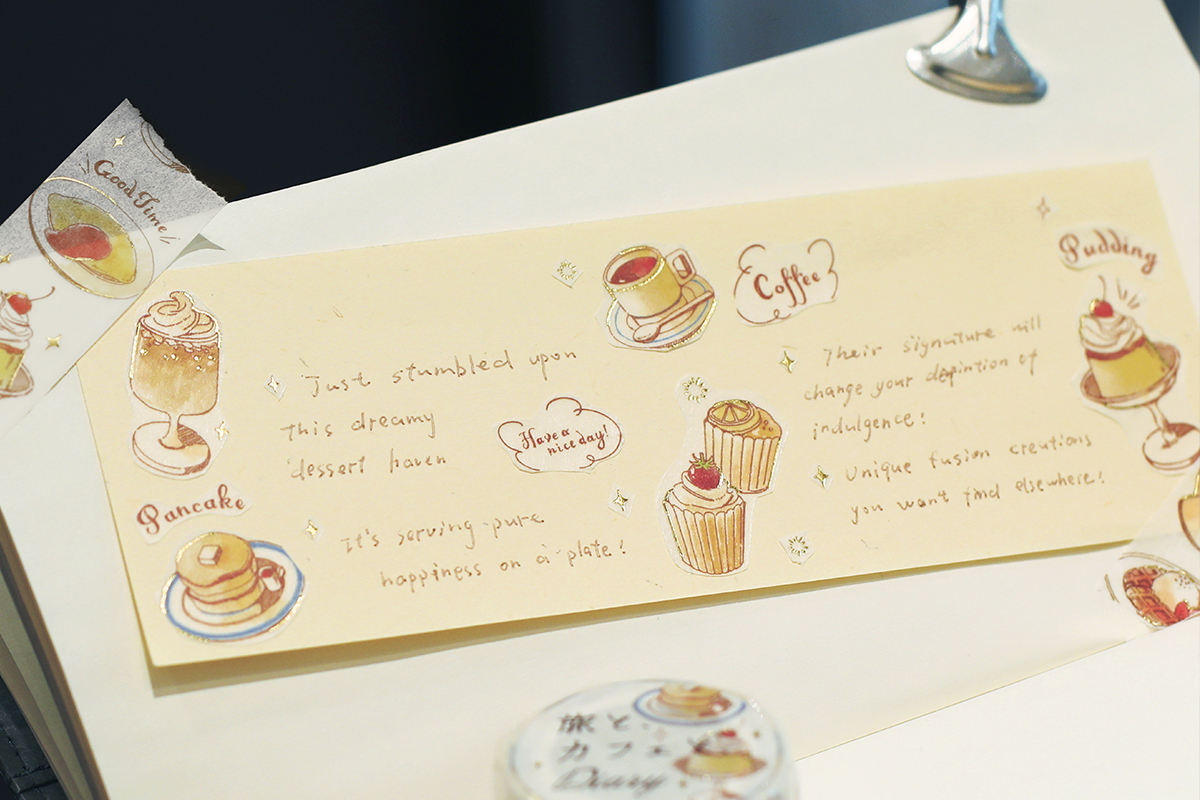 Good Time
Just stumbled upon
this dreamy
dessert haven
Have a
nice day!
Pancake
It's serving pure
happiness on a plate!
Coffee
Pudding
Their signature will
change your depintion of
indulgence!
Unique fusion creations
you want find elsewhere!
旅と、
カフェと
Diary